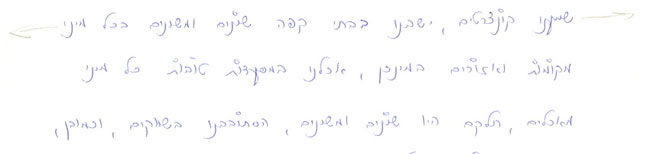 שמענו קונצרטים, ישבנו בבתי קפה שונים ומשונים בכל מיני
מקומות ואזורים במינכן, אכלנו במסעדות טובות כל מיני
מאכלים, חלקם היו שונים ומשונים, הסתובבנו בשווקים, וכמובן,